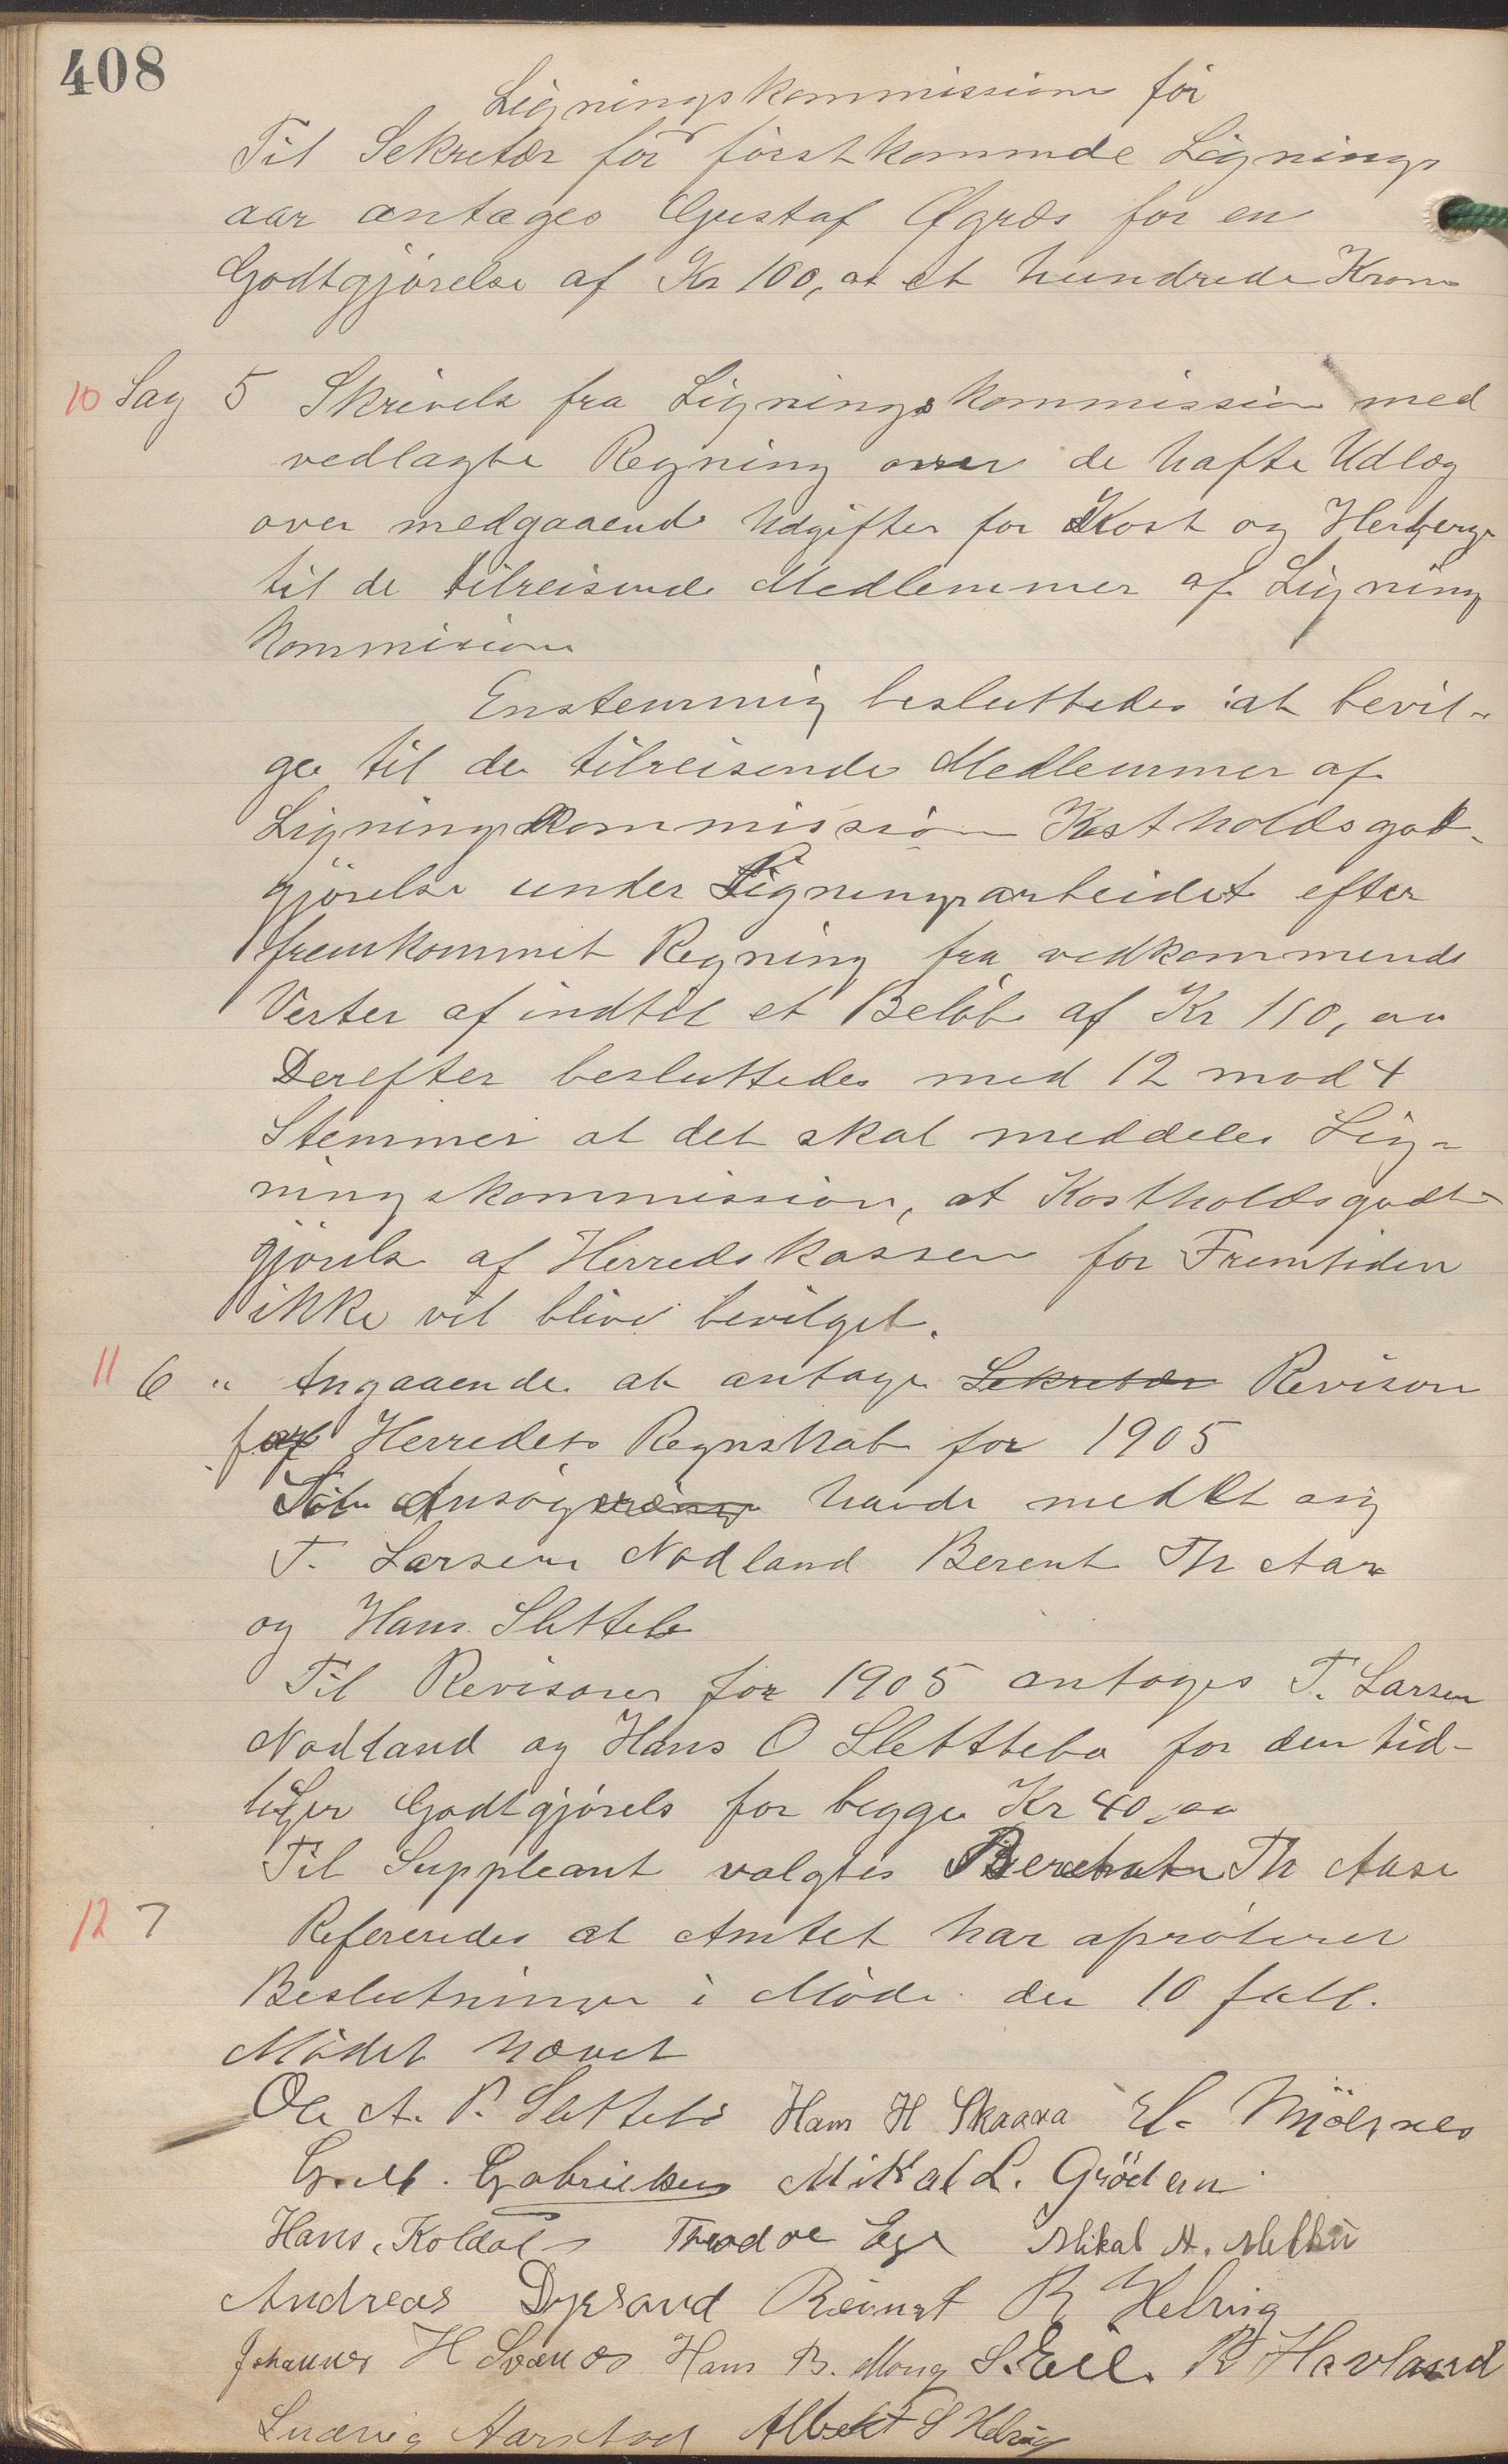 408
Ligningskommission for
Til Sekretær for förstkommde Lignings
aar antages Gustaf Øgræs for en
Godtgjörelse af Kr 100, oo et hundrede Kroner
10 Sag 5 Skrivels fra Ligningskommission med
vedlagte Regning over de hafte Udlæg
over medgaaende Udgifter for Kost og Herberge
til de tilreisende Medlemmer af Ligning
Kommision
Enstemmig besluttedes at bevil-
ge til de tilreisende Medlemmer af
Ligningskommission Kostholdsgod-
gjörelse under Ligningsarbeidet efter
fremkommet Regning fra vedkommende
Verter af indtil et Belöb af Kr 110, oo
Derefter besluttedes med 12 mod 4
Stemmer at det skal meddeles Lig-
ningskommission, at Kostholdsgodt-
gjörels af Herredskassen for Fremtiden
ikke vil blive bevilget.
11 6 " Angaaende at antage Sekretær Revisor
for Herredets Regnskab for 1905
Som Ansøger havde meldt sig
T. Larsen Nodland Berent Th Aase
og Hans Slettebø
Til Revisorer for 1905 antoges T. Larsen
Nodland og Hans O Slettebø for den tid-
liger Godtgjörels for begge Kr 40, oo
Til Suppleant valgtes Berent Th Aase
12 7 Refereredes at Amtet har aprøberet
Beslutninger i Möde den 10 f. all.
Mödet hævet
Ole A. P. Slettebö Hans H Skaara El. Mjölsnes
G. M. Gabrielsen Mikal L. Grödem
Hans. Koldal Theodor Ege Mikal A. Melhus
Andreas Dyrsand Reinert R Helvig
Johannes H Svanes Hans B. Mong S. Eie. R Havland
Ludvig Aarstad Albert S Helvig